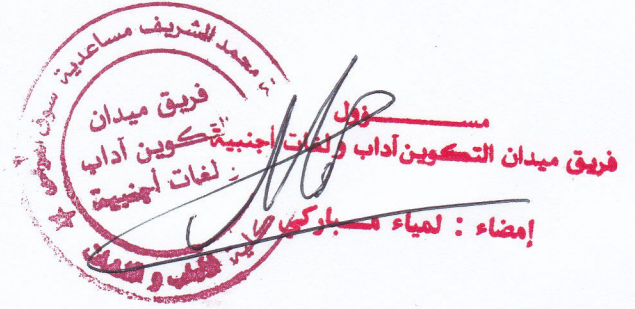 محمد الشريف مساعدية سوق أهراس
فريق ميدان
التكوين آداب
لغات أجنبية
كلية الآداب و اللغات
مســـــؤول
فريق ميدان التكوين آداب ولغات أجنبية
إمضاء : لمياء مباركي